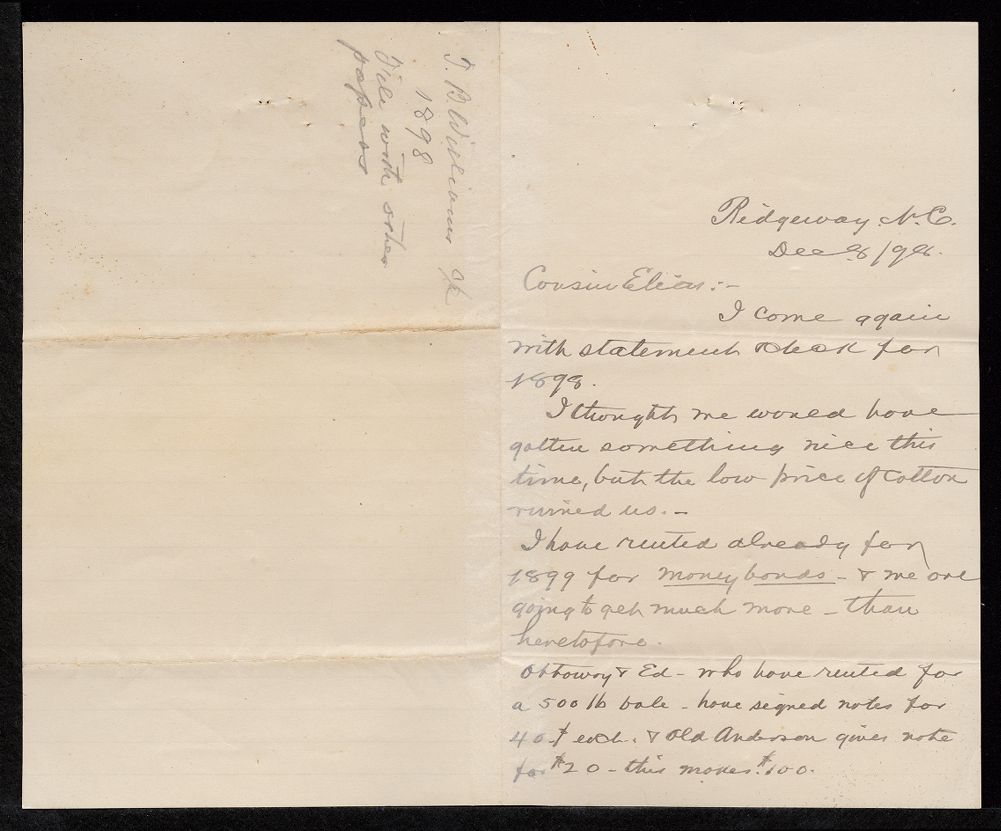 T. B. Williams
1898
File with other
papers
Ridgeway, N.C.
Dec 8/98.
Cousin Elias:-
I come again
with statement & check for
1898.
I thought we would have
gotten something nice this
time, but the low price of cotton
ruined us. -
I have rented already for
1899 for money bonds - & we are
going to get much more - than
heretofore.
Ottoway & Ed - who have rented for
a 500 lb bale - have signed notes for
40$ each. & Old Anderson gives note
for $20 - this makes $100.